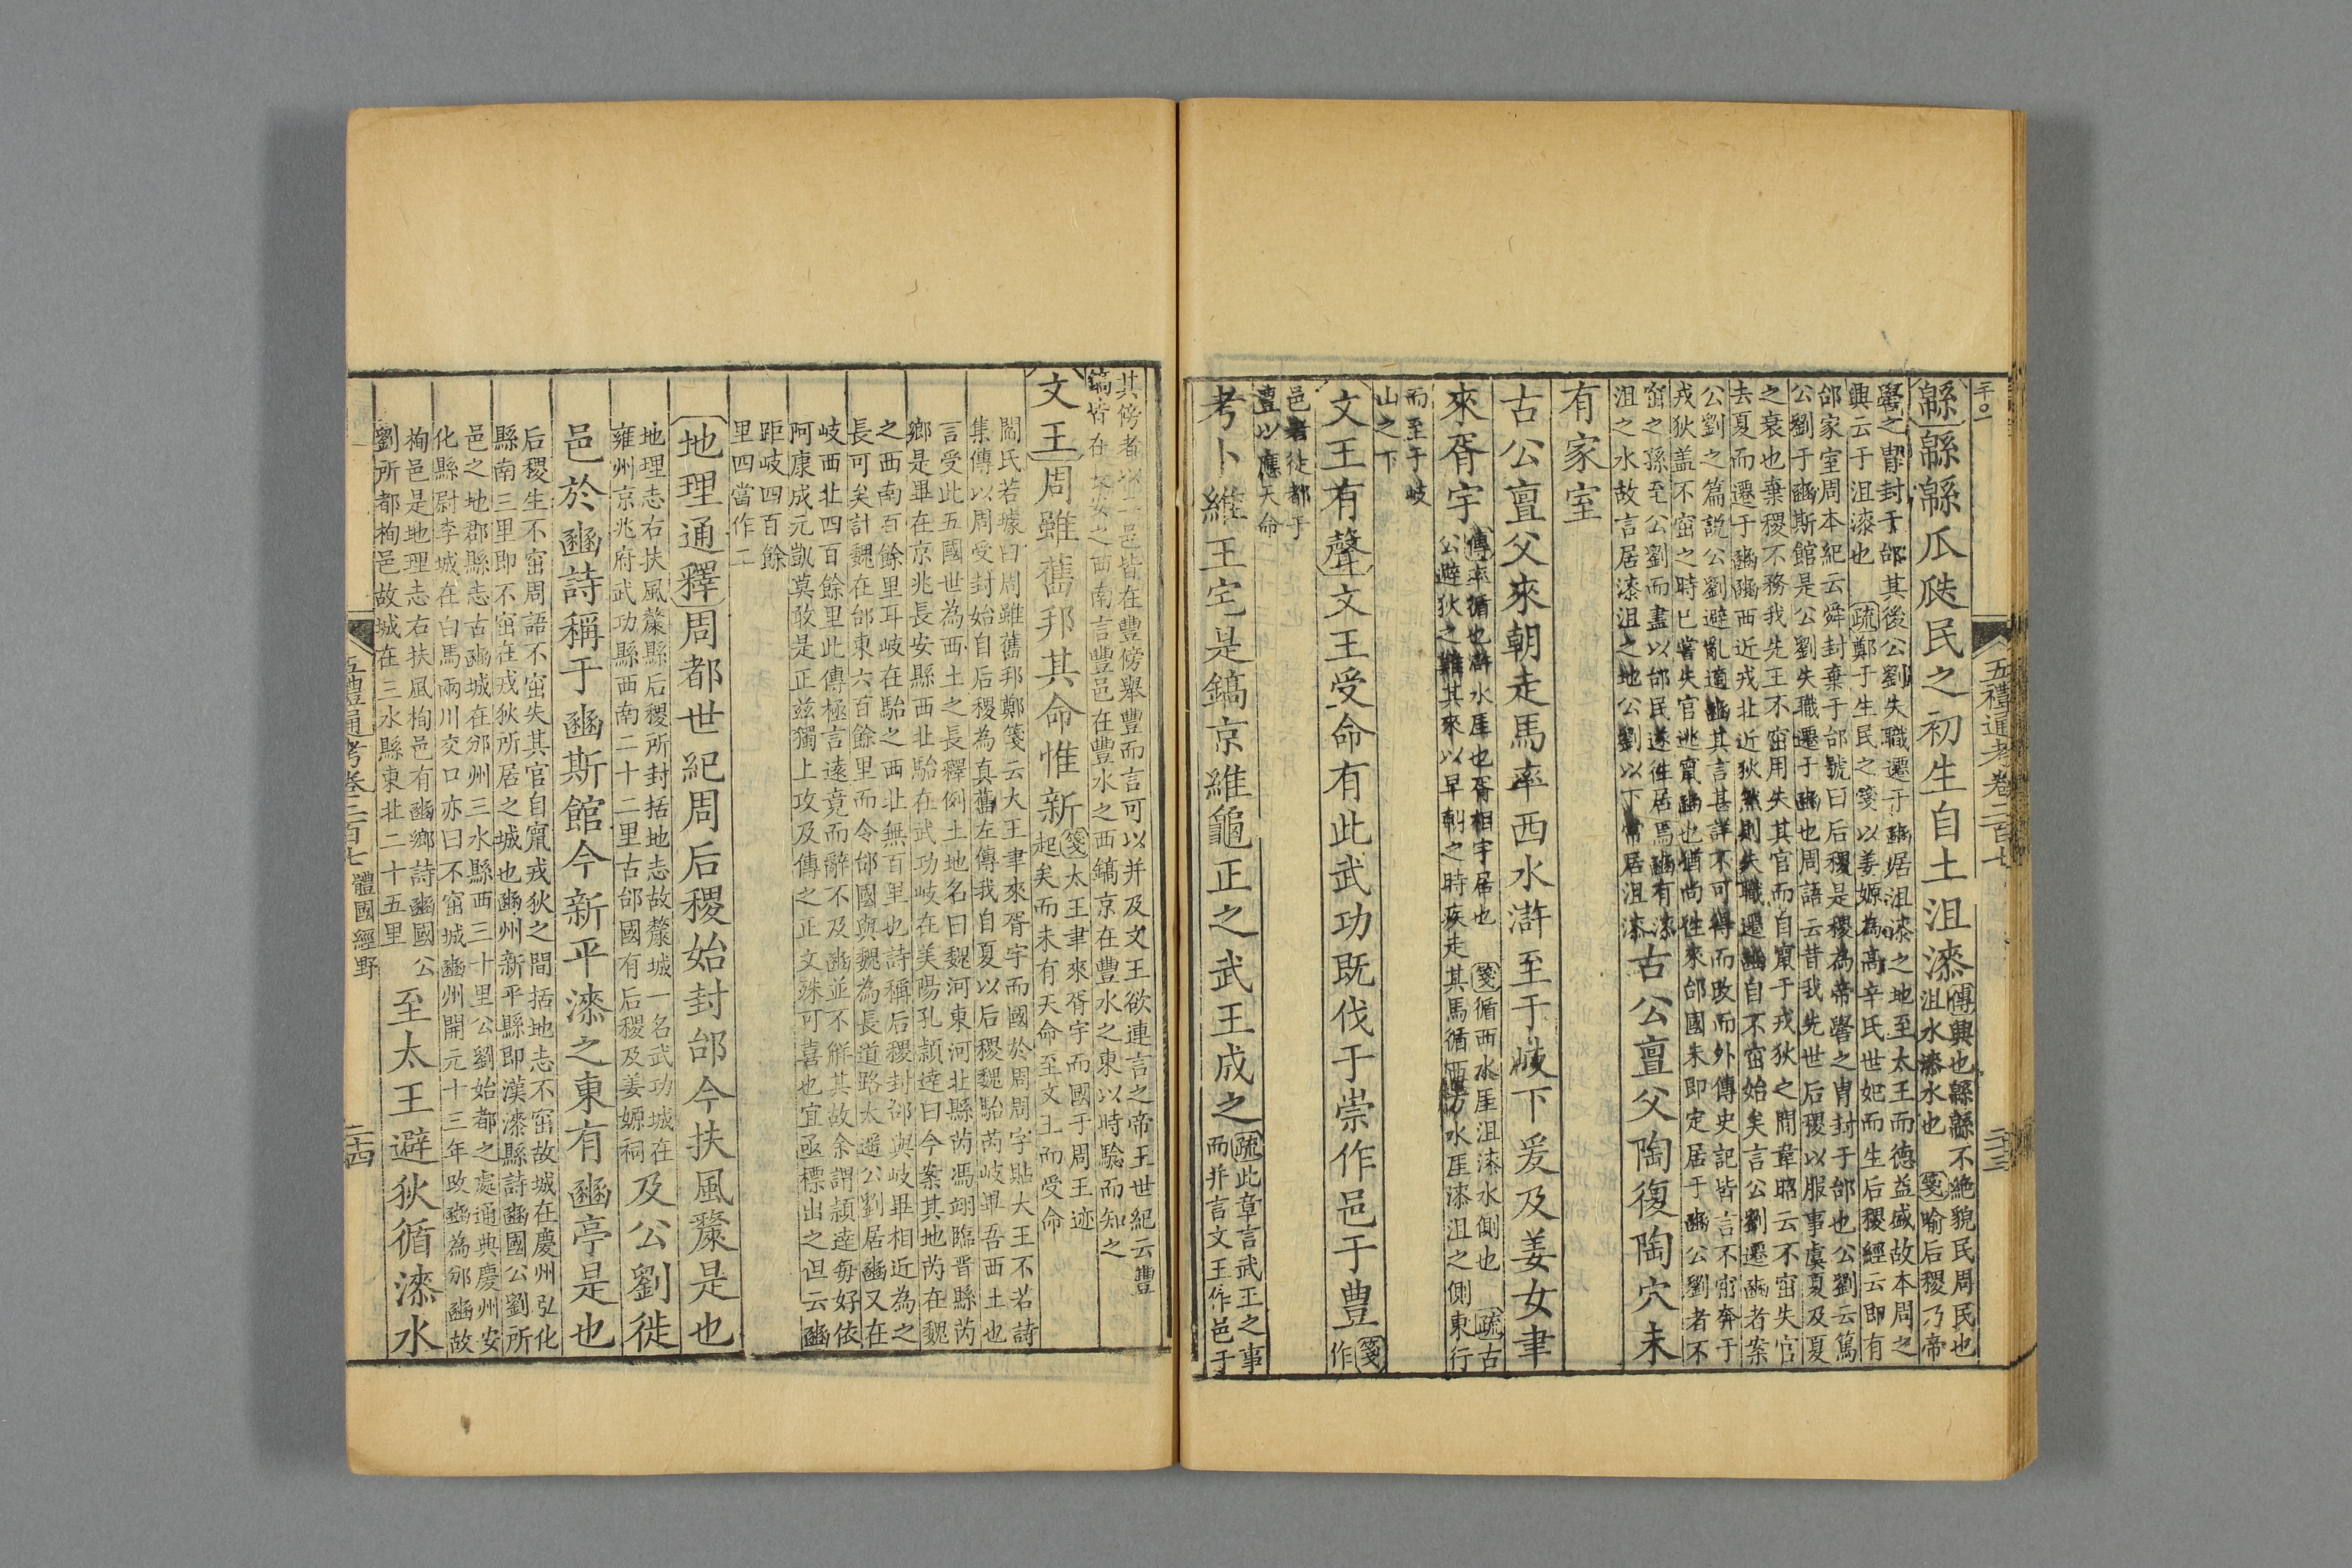 五禮通考卷二百七
二十三
緜緜緜瓜瓞民之初生自土沮漆
傳興也緜緜不絶貌民周民也
沮水漆水也箋喻后稷乃帝
嚳之胄封于邰其後公劉失職遷于豳居沮漆之地至太王而德益盛故本周之
興云于沮漆也疏鄭于生民之箋以姜嫄為高辛氏世妃而生后稷經云即有
邰家室周本紀云舜封棄于邰號曰后稷是稷為帝嚳之胄封于邰也公劉云篤
公劉于豳斯館是公劉失職遷于豳也周語云昔我先世后稷以服事虞夏及夏
之衰也棄稷不務我先王不窋用失其官而自竄于戎狄之間韋昭云不窋失官
去夏而遷于豳豳西近戎北近狄然則失職遷豳自不窋始矣言公劉遷豳者案
公劉之篇説公劉避亂適豳其言甚詳不可得而改而外傳史記皆言不窋奔于
戎狄盖不窋之時已嘗失官逃竄豳也猶尚往來邰國未即定居于豳公劉者不
窋之孫至公劉而盡以邰民遂往居焉豳有漆
沮之水故言居漆沮之地公劉以下常居沮漆
古公亶父陶復陶穴未
有家室
古公亶父來朝走馬率西水滸至于岐下爰及姜女聿
來胥宇
傳率循也滸水厓也胥相宇居也箋循西水厓沮漆水側也疏古
公避狄之難其來以早朝之時疾走其馬循西方水厓漆沮之側東行
而至于岐
山之下
文王有聲文王受命有此武功既伐于崇作邑于豊
箋作
邑者徙都于
澧以應天命
考卜維王宅是鎬京維龜正之武王成之
疏此章言武王之事
而并言文王作邑于
其傍者以二邑皆在豐傍舉豐而言可以并及文王欲連言之帝王世紀云豐
鎬皆在長安之西南言豐邑在豐水之西鎬京在豐水之東以時驗而知之
文王周雖舊邦其命惟新
箋太王聿來胥宇而國于周王迹
起矣而未有天命至文王而受命
閻氏若璩曰周雖舊邦鄭箋云大王聿來胥宇而國於周周字貼大王不若詩
集傳以周受封始自后稷為真舊左傳我自夏以后稷魏駘芮岐畢吾西土也
言受此五國世為西土之長釋例土地名曰魏河東河北縣芮馮翊臨晋縣芮
鄉是畢在京兆長安縣西北駘在武功岐在美陽孔頴達曰今案其地芮在魏
之西南百餘里耳岐在駘之西北無百里也詩稱后稷封邰與岐畢相近為之
長可矣計魏在邰東六百餘里而令邰國與魏為長道路太遥公劉居豳又在
岐西北四百餘里此傳極言遠竟而辭不及豳並不觧其故余謂頴逹毎好依
阿康成元凱莫敢是正兹獨上攻及傳之正文殊可喜也宜亟標出之但云豳
距岐四百餘
里四當作二
地理通釋周都世紀周后稷始封邰今扶風斄是也
地理志右扶風斄縣后稷所封括地志故斄城一名武功城在
雍州京兆府武功縣西南二十二里古邰國有后稷及姜嫄祠
及公劉徙
邑於豳詩稱于豳斯館今新平漆之東有豳亭是也
后稷生不窋周語不窋失其官自竄戎狄之間括地志不窋故城在慶州弘化
縣南三里即不窋在戎狄所居之城也豳州新平縣即漢漆縣詩豳國公劉所
邑之地郡縣志古豳城在邠州三水縣西三十里公劉始都之處通典慶州安
化縣尉李城在白馬兩川交口亦曰不窋城豳州開元十三年改豳為邠豳故
栒邑是地理志右扶風栒邑有豳鄉詩豳國公
劉所都栒邑故城在三水縣東北二十五里
至太王避狄循漆水
五禮通考卷二百七
體國經野
二十四